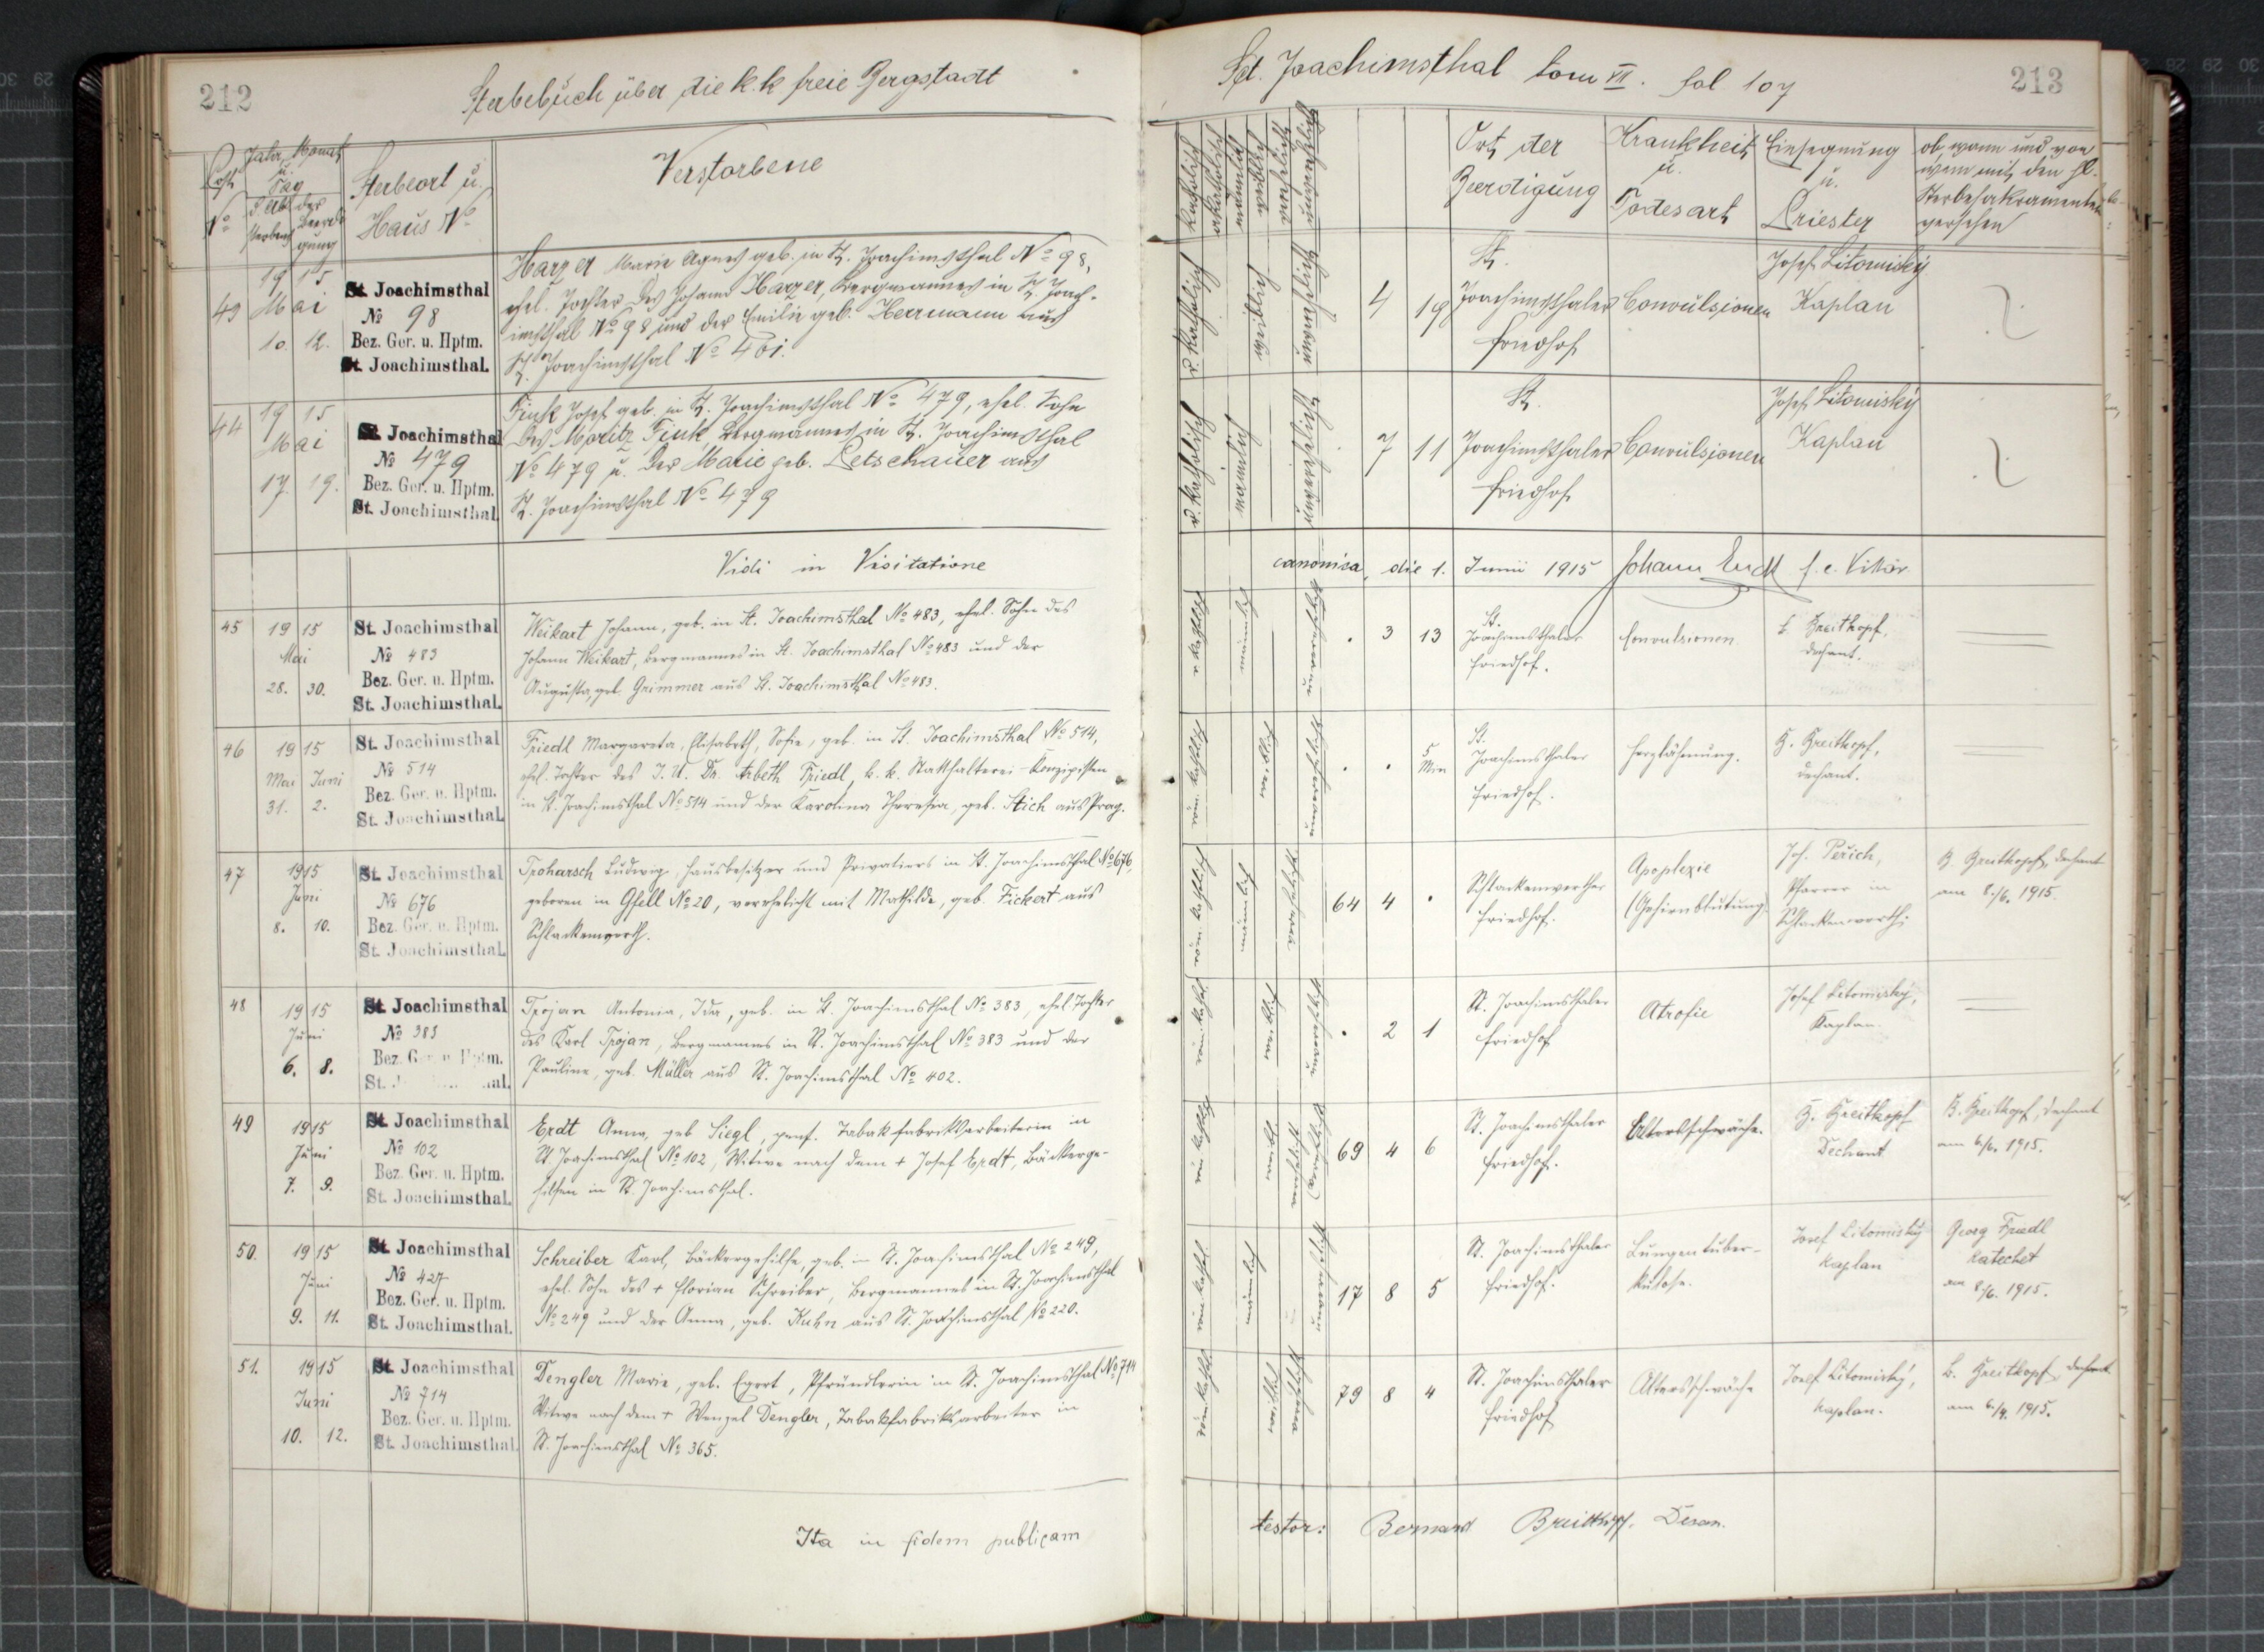 212
Sterbebuch über die k. k. freie Bergstadt
Post
No
Jahr, Monat
u.
Tag
d. Ab-
sterbens
der
Beerdi-
gung
Sterbeort u.
Haus No
Verstorbene
43
19 15
Mai
10. 12.
St. Joachimsthal
No 98
Bez. Ger. u. Hptm.
St. Joachimsthal.
Harzer Marie Agnes geb. in St. Joachimsthal No 98,
ehel. Tochter des Johann Harzer, Bergmannes in St. Joach-
imsthal No 98 und der Emilie geb. Herrmann aus
St. Joachimsthal No 401.
44
19 15
Mai
17. 19.
St. Joachimsthal
No 479
Bez. Ger. u. Hptm.
St. Joachimsthal.
Fink Josef geb. in St. Joachimsthal No 479, ehel. Sohn
des Moritz Fink, Bergmannes in St. Joachimsthal
No 479 u. der Marie geb. Letschauer aus
St. Joachimsthal No 479
Vidi in Visitatione
45
19 15
Mai
28. 30.
St. Joachimsthal
No 483
Bez. Ger. u. Hptm.
St. Joachimsthal.
Weikart Johann, geb. in St. Joachimsthal No 483, ehel. Sohn des
Johann Weikart, Bergmannes in St. Joachimsthal No 483 und der
Augusta, geb. Grimmer aus St. Joachimsthal No 483.
46
19 15
Mai Juni
31. 2.
St. Joachimsthal
No 514
Bez. Ger. u. Hptm.
St. Joachimsthal.
Friedl Margareta, Elisabeth, Sofie, geb. in St. Joachimsthal No 514,
ehel. Tochter des J. U. Dr. Friedl, k. k. Statthalterei-Konzipisten
in St. Joachimsthal No 514 und der Karolina Theresia, geb. Stich aus Prag.
47
1915
Juni
8. 10.
St. Joachimsthal
No 676
Bez. Ger. u. Hptm.
St. Joachimsthal.
Troharsch Ludwig, Hausbesitzer und Privatiers in St. Joachimsthal No 676,
geboren in Gsell No 20, verehelicht mit Mathilde, geb. Fickert aus
Schlackenwerth.
48
19 15
Juni
6. 8.
St. Joachimsthal
No 383
Bez. Ger. u. Hptm.
St. Joachimsthal.
Trojan Antonia, Ida, geb. in St. Joachimsthal No 383, ehel. Tochter
des Karl Trojan, Bergmannes in St. Joachimsthal No 383 und der
Pauline, geb. Müller aus St. Joachimsthal No 402.
49
1915
Juni
7. 9.
St. Joachimsthal
No 102
Bez. Ger. u. Hptm.
St. Joachimsthal.
Erdt Anna, geb. Siegl, pens. Tabakfabriksarbeiterin in
St. Joachimsthal No 102, Witwe nach dem + Josef Erdt, Bäckerge-
hilfen in St. Joachimsthal.
50.
1915
Juni
9. 11.
St. Joachimsthal
No 427
Bez. Ger. u. Hptm.
St. Joachimsthal.
Schreiber Karl, Bäckergehilfe, geb. in St. Joachimsthal No 249,
ehel. Sohn des + Florian Schreiber, Bergmannes in St. Joachimsthal
No 249 und der Anna, geb. Kuhn aus St. Joachimsthal No 220.
51.
1915
Juni
10. 12.
St. Joachimsthal
No 714
Bez. Ger. u. Hptm.
St. Joachimsthal.
Dengler Marie, geb. Egert, Pfründlerin in St. Joachimsthal No 714
Witwe nach dem + Wenzel Dengler, Tabakfabriksarbeiter in
St. Joachimsthal No 365.
Ita in fidem publicam
Sct. Joachimsthal tom VII. fol. 107
213
katholisch
akatholisch
männlich
weiblich
verehelicht
unverehelicht
Ort der
Beerdigung
Krankheit
u.
Todesart
Einsegnung
u.
Priester
ob, wann und von
wem mit den hl.
Sterbesakramenten
versehen
r. katholisch
weiblich
unverehelicht
4 19
St.
Joachimsthaler
Friedhof
Convulsionen
Josef Litomiský
Kaplan
r. katholisch
männlich
unverehelicht
7 11
St.
Joachimsthaler
Friedhof
Convulsionen
Josef Litomiský
Kaplan
canonica, die 1. Junii 1915 Johann f. e. Vikär
r. katholisch
männlich
unverehelicht
. 3 13
St.
Joachimsthaler
Friedhof.
Convulsionen
B. Breitkopf,
Dechant.
röm. katholisch
weiblich
unverehelicht
. . 5 Min
St.
Joachimsthaler
Friedhof.
Herzlähmung.
B. Breitkopf,
Dechant.
röm. katholisch
männlich
verehelicht
64 4 .
Schlackenwerther
Friedhof.
Apoplexie
(Gehirnblutung)
Joh. Peřich,
Pfarrer in
Schlackenwerth.
B. Breitkopf, Dechant
am 8./6. 1915.
röm. kathol.
weiblich
unverehelicht
. 2 1
St. Joachimsthaler
Friedhof
Atrofie
Josef Litomiský,
Kaplan.
röm. kathol.
weiblich
verehelicht
69 4 6
St. Joachimsthaler
Friedhof.
Altersschwäche.
B. Breitkopf
Dechant
B. Breitkopf, Dechant
am 6/6. 1915.
röm. kathol.
männlich
unverehelicht
17 8 5
St. Joachimsthaler
Friedhof.
Lungentuber-
kulose.
Josef Litomiský
Kaplan
Georg Friedl
Katechet
am 8/6. 1915.
röm. kathol.
weiblich
verehelicht
79 8 4
St. Joachimsthaler
Friedhof
Altersschwäche
Josef Litomiský,
Kaplan.
B. Breitkopf, Dechant
am 1915.
testor: Bernard Breitkopf. Decan.